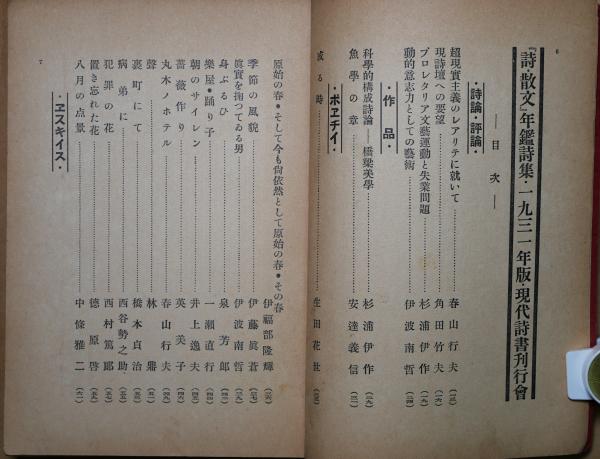 6
『詩・散文』年鑑詩集・一九三一年版・現代詩書刊行會
――目次――
・詩論・評論・
超現実主義のレアリテに就いて……春山行夫(一三)
現詩壇への要望……角田竹夫(一六)
プロレタリア文藝運動と失業問題……杉浦伊作(一九)
動的意志力としての藝術……伊波南哲(二四)
・作品・
科學的構成詩論――橋梁美學……杉浦伊作(二九)
魚學の章……安達義信(三一)
・ポエチイ・
或る時……生田花世
原始の春●そして今も尙依然として原始の春●その春……伊福部隆輝(三六)
季節の風貌……伊藤眞蒼(三七)
眞實を掏つてゐる男……伊波南哲(三九)
身ぶるひ……泉芳郎
樂屋・踊り子……一瀬直行(四四)
朝のサイレン……井上逸夫(四五)
薔薇作り……英美子
丸木ノホテル……春山行夫(四九)
聲……林鼎
裏町にて……橋本貞治
病弟に……西谷勢之助
犯罪の花……西村篤郞
置き忘れた花……德原啓(五九)
八月の点景……中條雅二(六一)
・エスキイス・
7